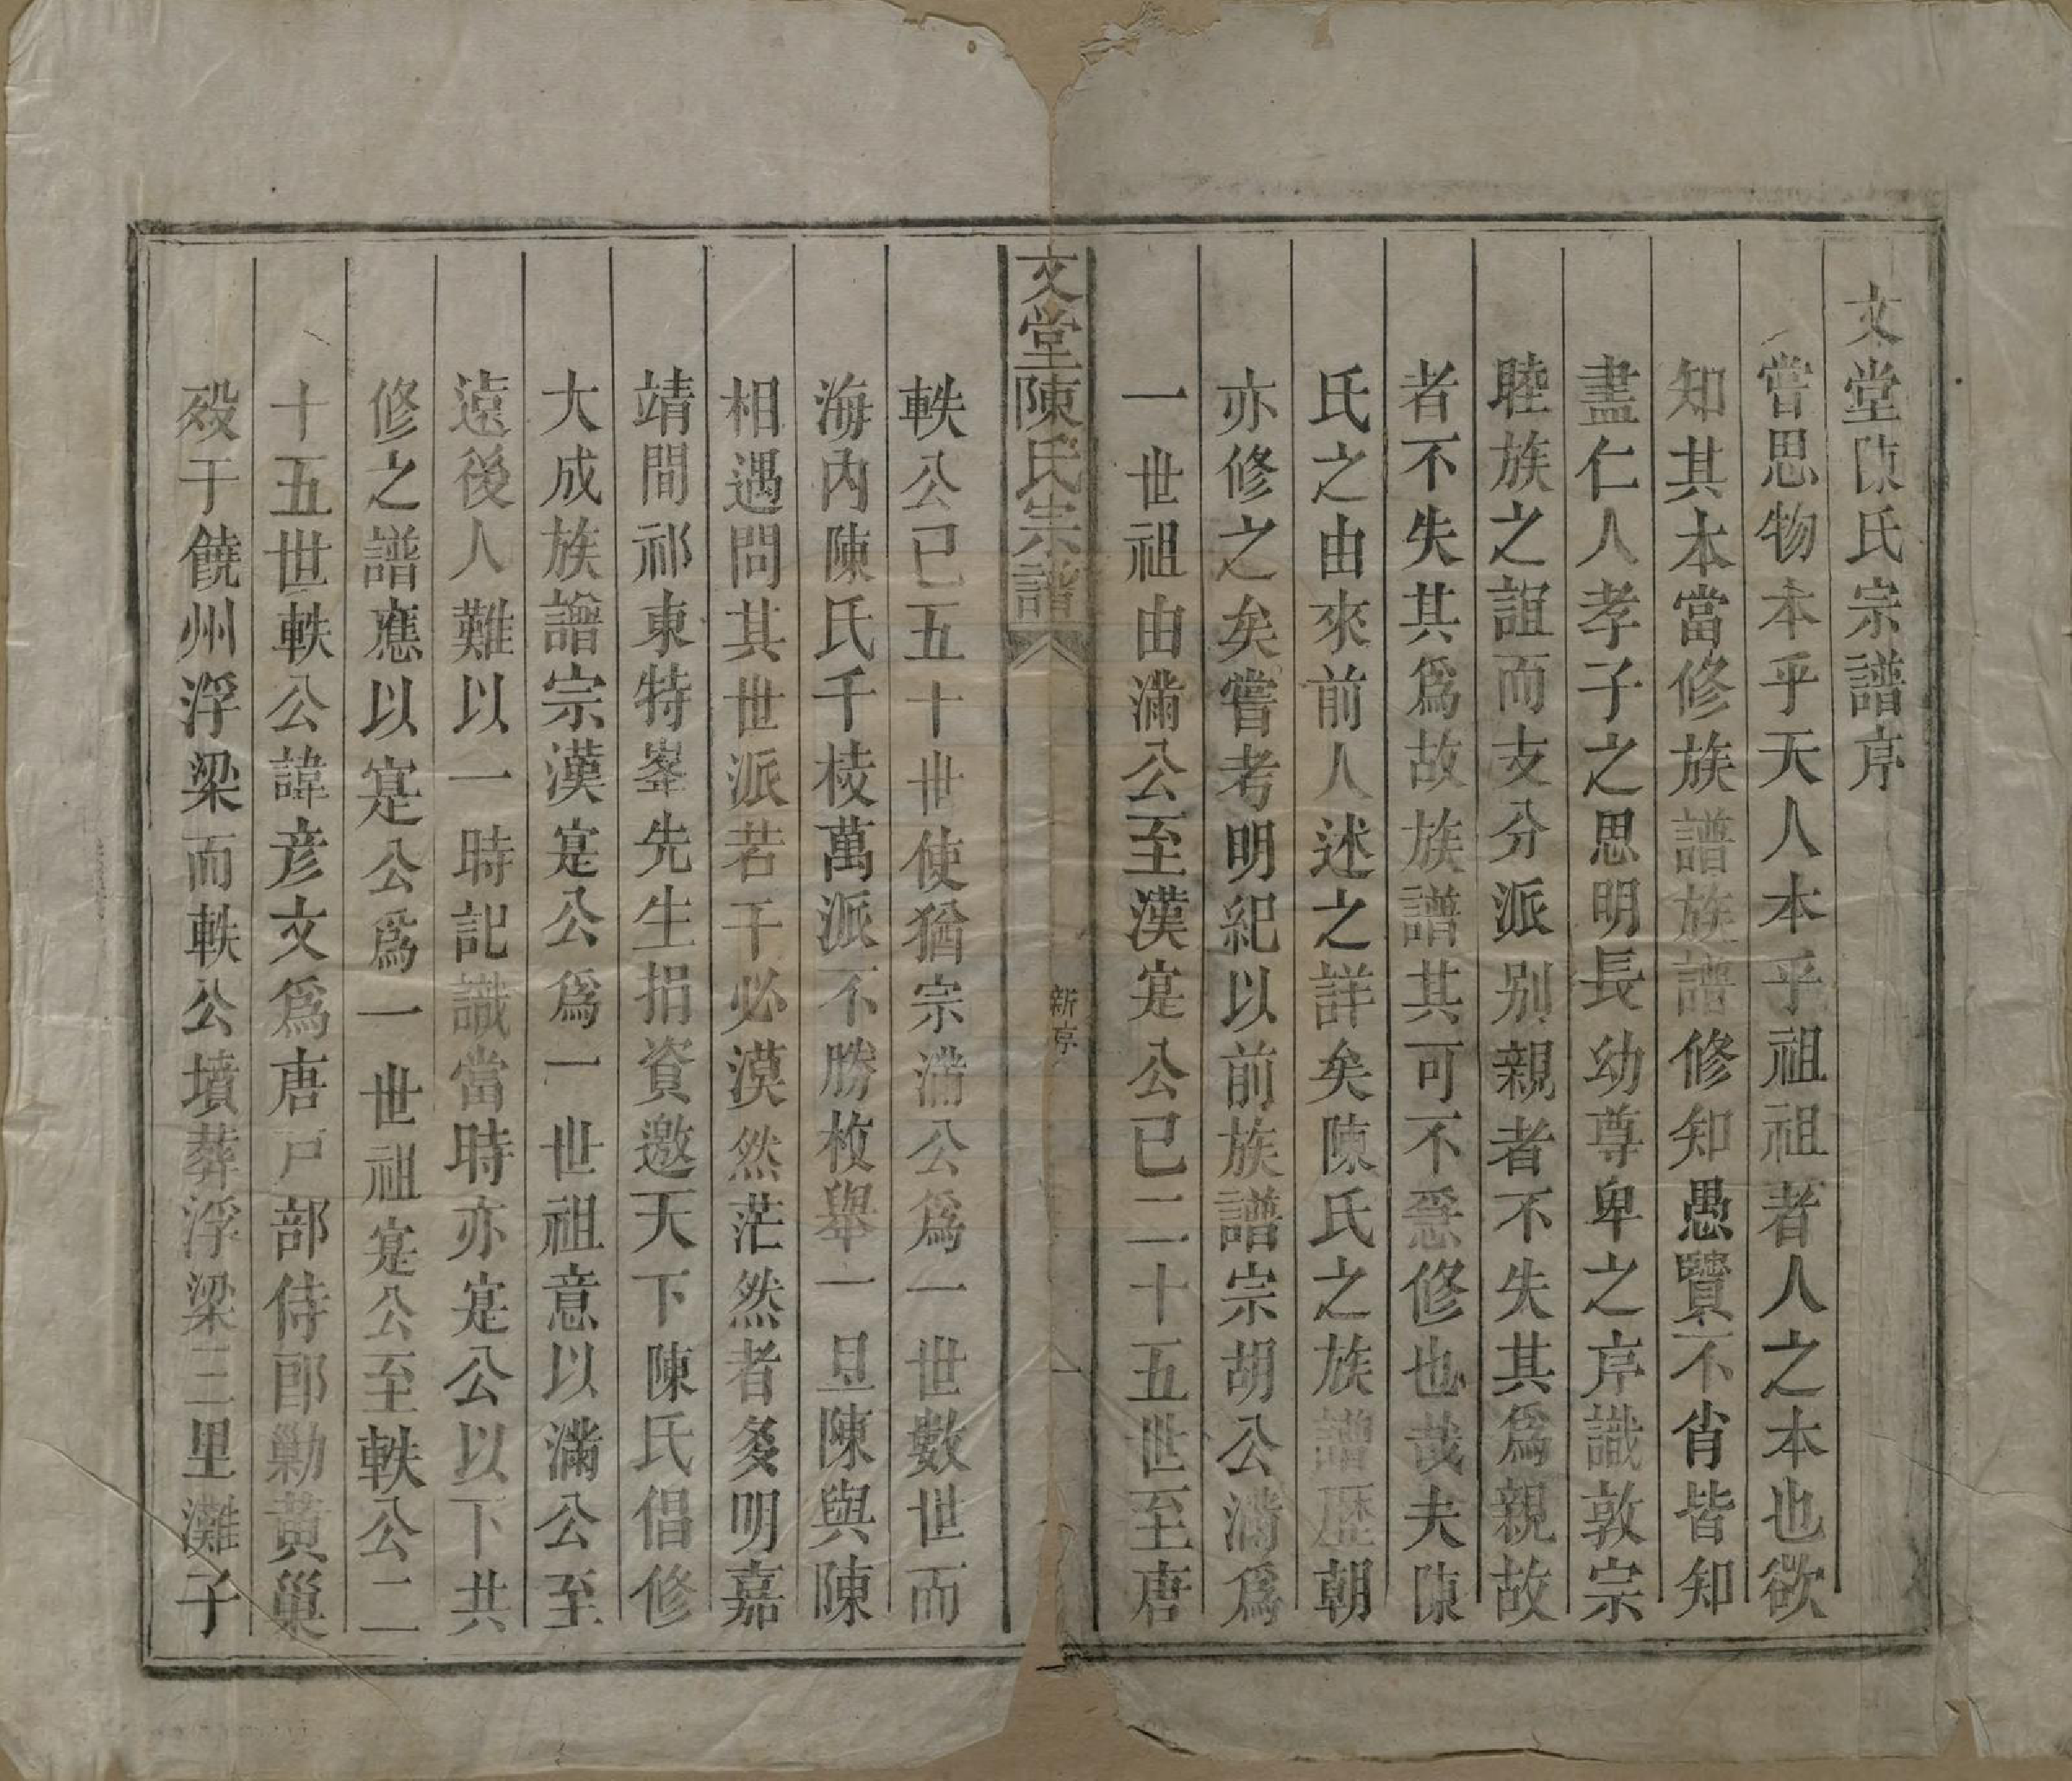 文堂陳氏宗譜序
嘗思物本乎天人本乎祖祖者人之本也欲
知其本當修族譜族譜修知愚賢不肖皆知
盡仁人孝子之思明長幼尊卑之序識敦宗
睦族之誼而支分派别親者不失其爲親故
者不失其爲故族譜其可不亟修也哉夫陳
氏之由來前人述之詳矣陳氏之族譜歷朝
亦修之矣嘗考明紀以前族譜宗胡公滿爲
一世祖由滿公至漢寔公已二十五世至唐
文堂陳氏宗譜
新序
一
軼公已五十世使猶宗滿公爲一世數世而
海内陳氏千棱萬派不勝枚舉一旦陳與陳
相遇問其世派若干必漠然茫然者多明嘉
靖間祁東特峯先生捐資邀天下陳氏倡修
大成族譜宗漢寔公爲一世祖意以滿公至
遠後人難以一時記識當時亦寔公以下共
修之譜應以寔公爲一世祖寔公至軼公二
十五世軼公諱彦文爲唐戸部侍郎勦黄巢
殁于饒州浮梁而軼公墳葬浮梁三里灘子